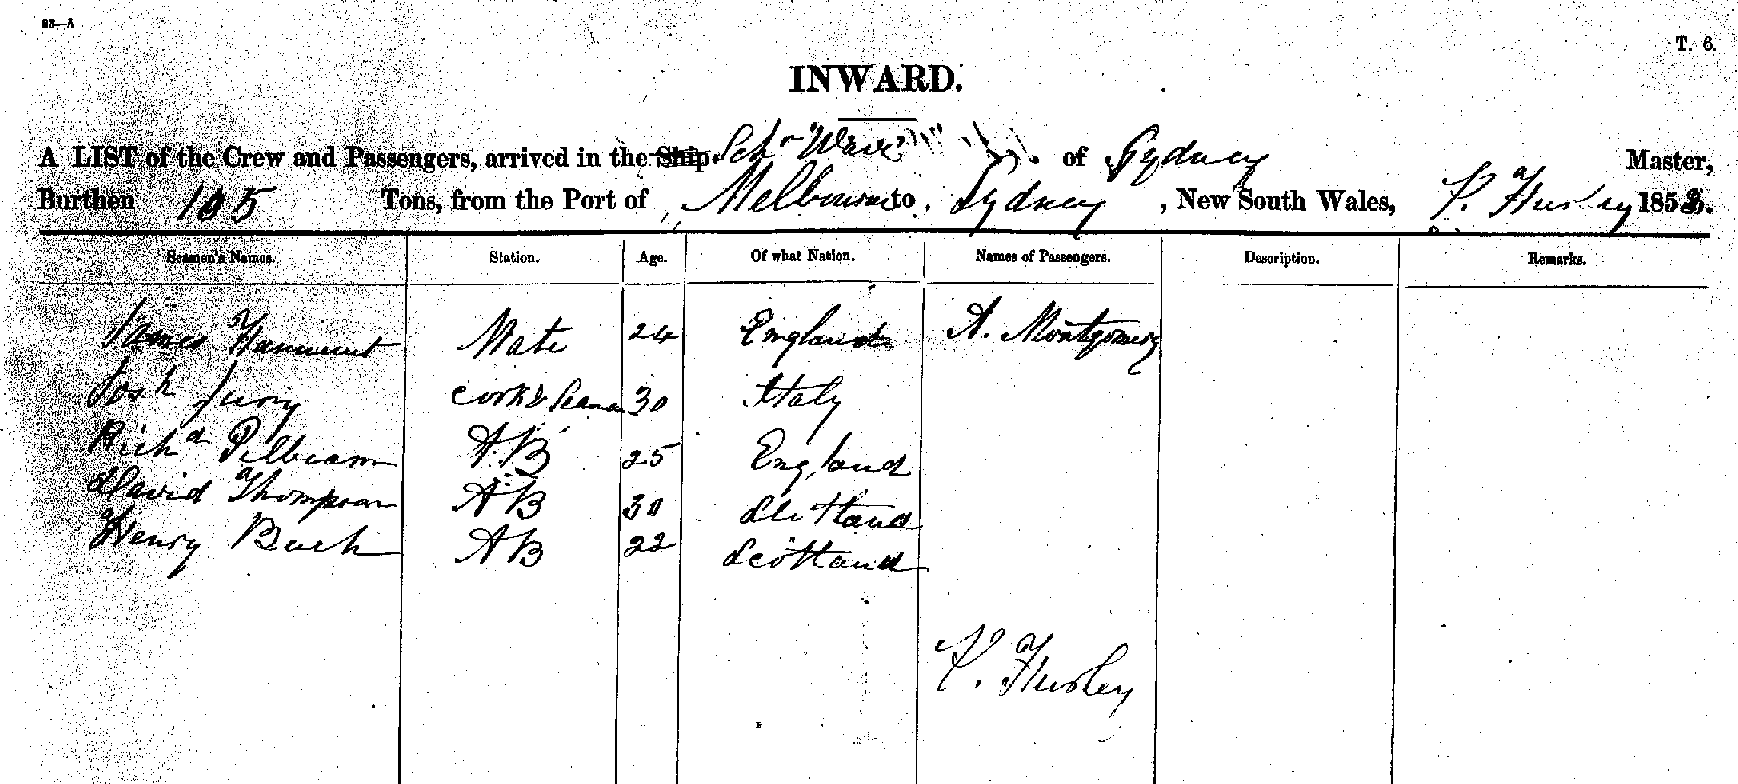 23—A
T. 6.
INWARD.
A LIST of the Crew and Passengers, arrived in the Ship Schr "Wave" of Sydney Master,
Burthen 105 Tons, from the Port of Melbourne to Sydney, New South Wales, 185
Seamen's Names. Station. Age. Of what Nation. Names of Passengers. Description. Remarks.
James Mate 24 England A. Montgomery
Josh Jury Cook & 30 Italy
Richd Pilbeam AB 25 England
David Thompson AB 30 Scotland
Henry AB 22 Scotland